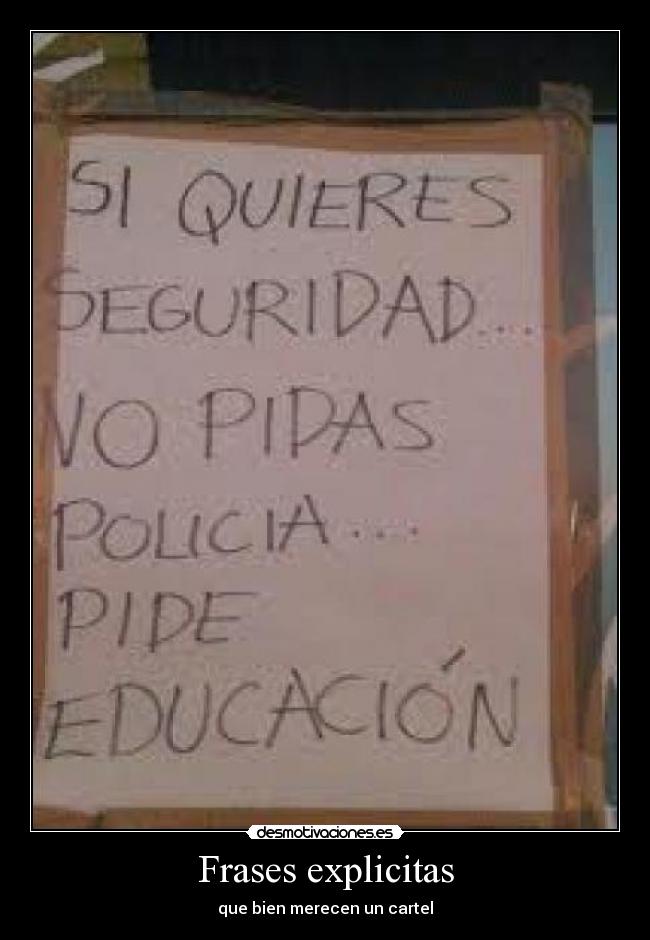 SI QUIERES
SEGURIDAD...
NO PIDAS
POLICIA...
PIDE
EDUCACIÓN
desmotivaciones.es
Frases explicitas
que bien merecen un cartel